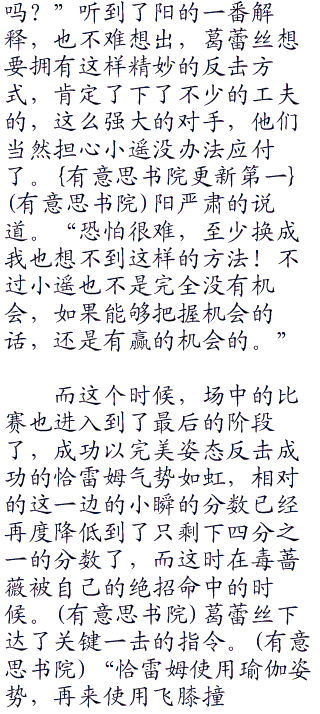 吗？”听到了阳的一番解
释，也不难想出，葛蕾丝想
要拥有这样精妙的反击方
式，肯定了下了不少的工夫
的，这么强大的对手，他们
当然担心小遥没办法应付
了。{有意思书院更新第一}
(有意思书院)阳严肃的说
道。“恐怕很难，至少换成
我也想不到这样的方法！不
过小遥也不是完全没有机
会，如果能够把握机会的
话，还是有赢的机会的。”
而这个时候，场中的比
赛也进入到了最后的阶段
了，成功以完美姿态反击成
功的恰雷姆气势如虹，相对
的这一边的小瞬的分数已经
再度降低到了只剩下四分之
一的分数了，而这时在毒蔷
薇被自己的绝招命中的时
候。(有意思书院)葛蕾丝下
达了关键一击的指令。(有意
思书院)“恰雷姆使用瑜伽姿
势，再来使用飞膝撞